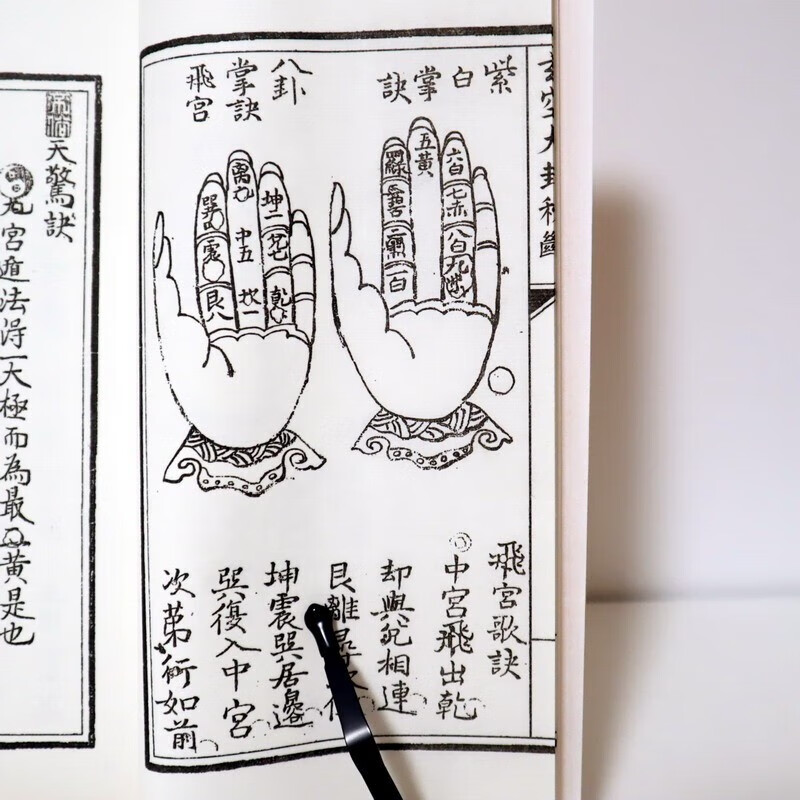 玄空大卦秘斷
紫白掌訣
六白
七赤
八白
九紫
五黄
四綠
三碧
二黑
一白
八卦
掌訣
飛宮
坤二
兌七
乾
離九
中五
坎一
巽
震
艮八
飛宮歌訣
中宮飛出乾
却與兌相連
艮離
坤震巽居邊
巽復入中宮
次第術如前
天驚訣
九宮遁法淂一大極而為最
黃是也